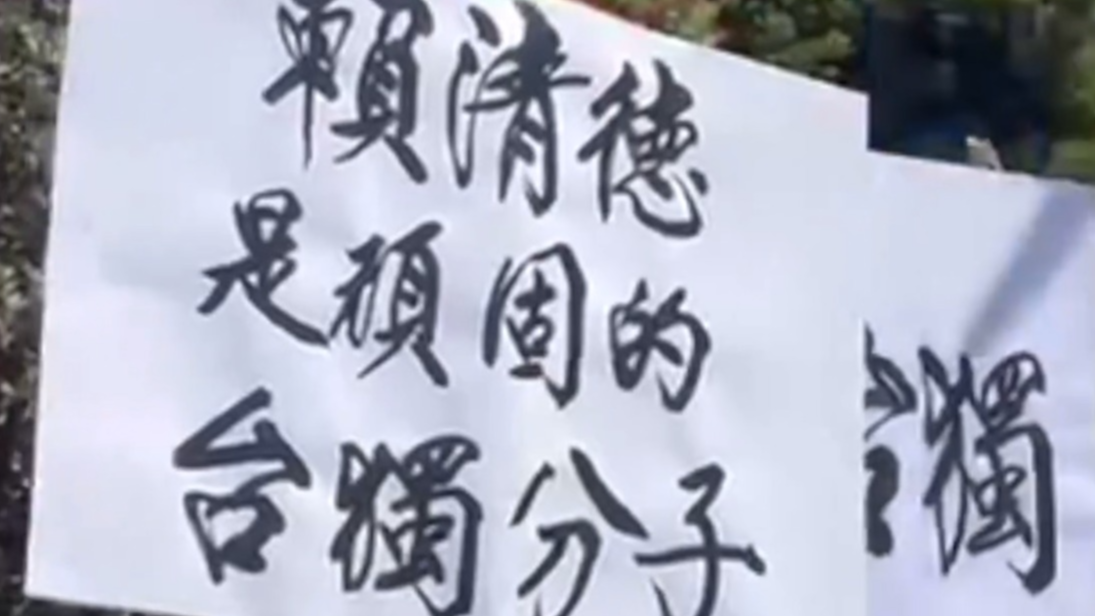 賴清德
是頑固的
台獨分子
台獨